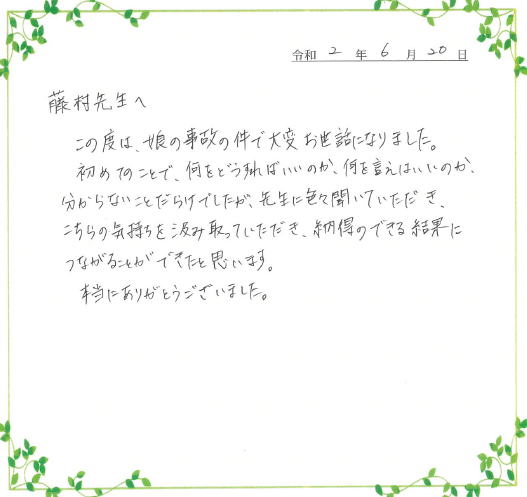 令和 2 年 6 月 20 日
藤村先生へ
この度は、娘の事故の件で大変お世話になりました。
初めてのことで、何をどうすればいいのか、何を言えばいいのか、
分からないことだらけでしたが、先生に色々聞いていただき、
こちらの気持ちを汲み取っていただき、納得のできる結果に
つながることができたと思います。
本当にありがとうございました。